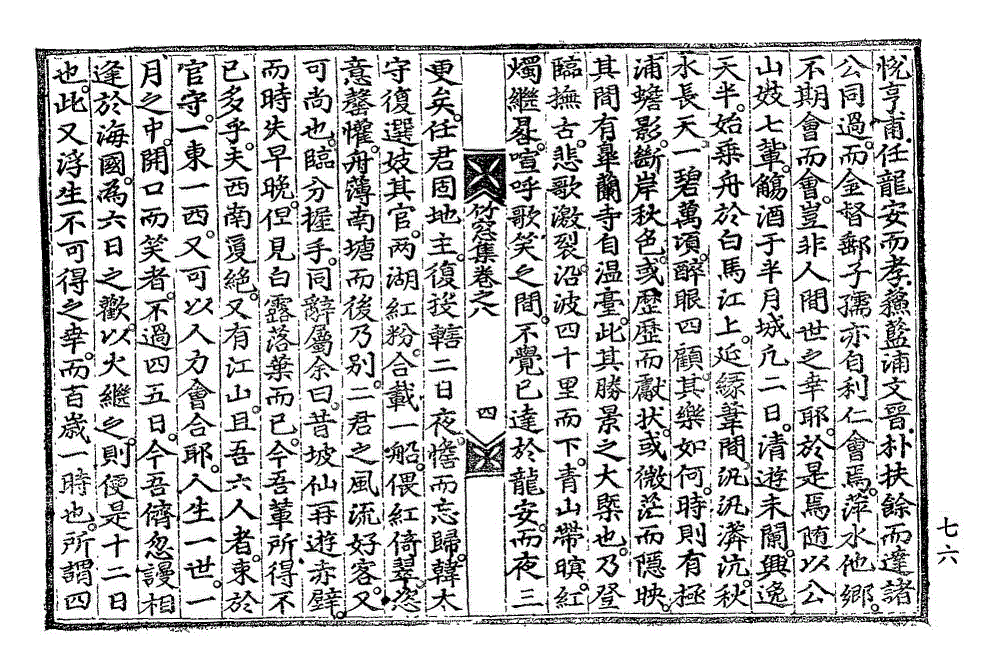 悅亨甫任龍安而孝蘓藍浦文晋朴扶餘而達諸
公同過而金督郵子孺亦自利仁會焉萍水他鄉
不期會而會豈非人間世之幸耶於是焉隨以公
山妓七輩觴酒于半月城九二日淸遊未闌興逸
天半始乘舟於白馬江上延緣葦間汎汎漭沆秋
水長天一碧萬頃醉眼四顧其樂如何時則有極
浦蟾影斷岸秋色或歷歷而獻狀或微茫而隱映
其間有皐蘭寺自温臺此其勝景之大槩也乃登
臨撫古悲歌激裂沿波四十里而下靑山帶暝紅
燭繼晷喧呼歌笑之間不覺已達於龍安而夜三
竹窓集卷之八 四
更矣任君固地主復投轄二日夜憺而忘歸韓太
守復選妓其官兩湖紅粉合載一船偎紅倚翠恣
意罄懽舟薄南塘而後乃别二君之風流好客又
可尚也臨分握手同辭屬余曰昔坡仙再遊赤壁
而時失早晚但見白露落葉而已今吾輩所得不
已多乎夫西南敻絶又有江山且吾六人者束於
官守一東一西又可以人力會合耶人生一世一
月之中開口而笑者不過四五日今吾儕忽謾相
逢於海國爲六日之歡以火繼之則便是十二日
也此又浮生不可得之幸而百歲一時也所謂四
七六